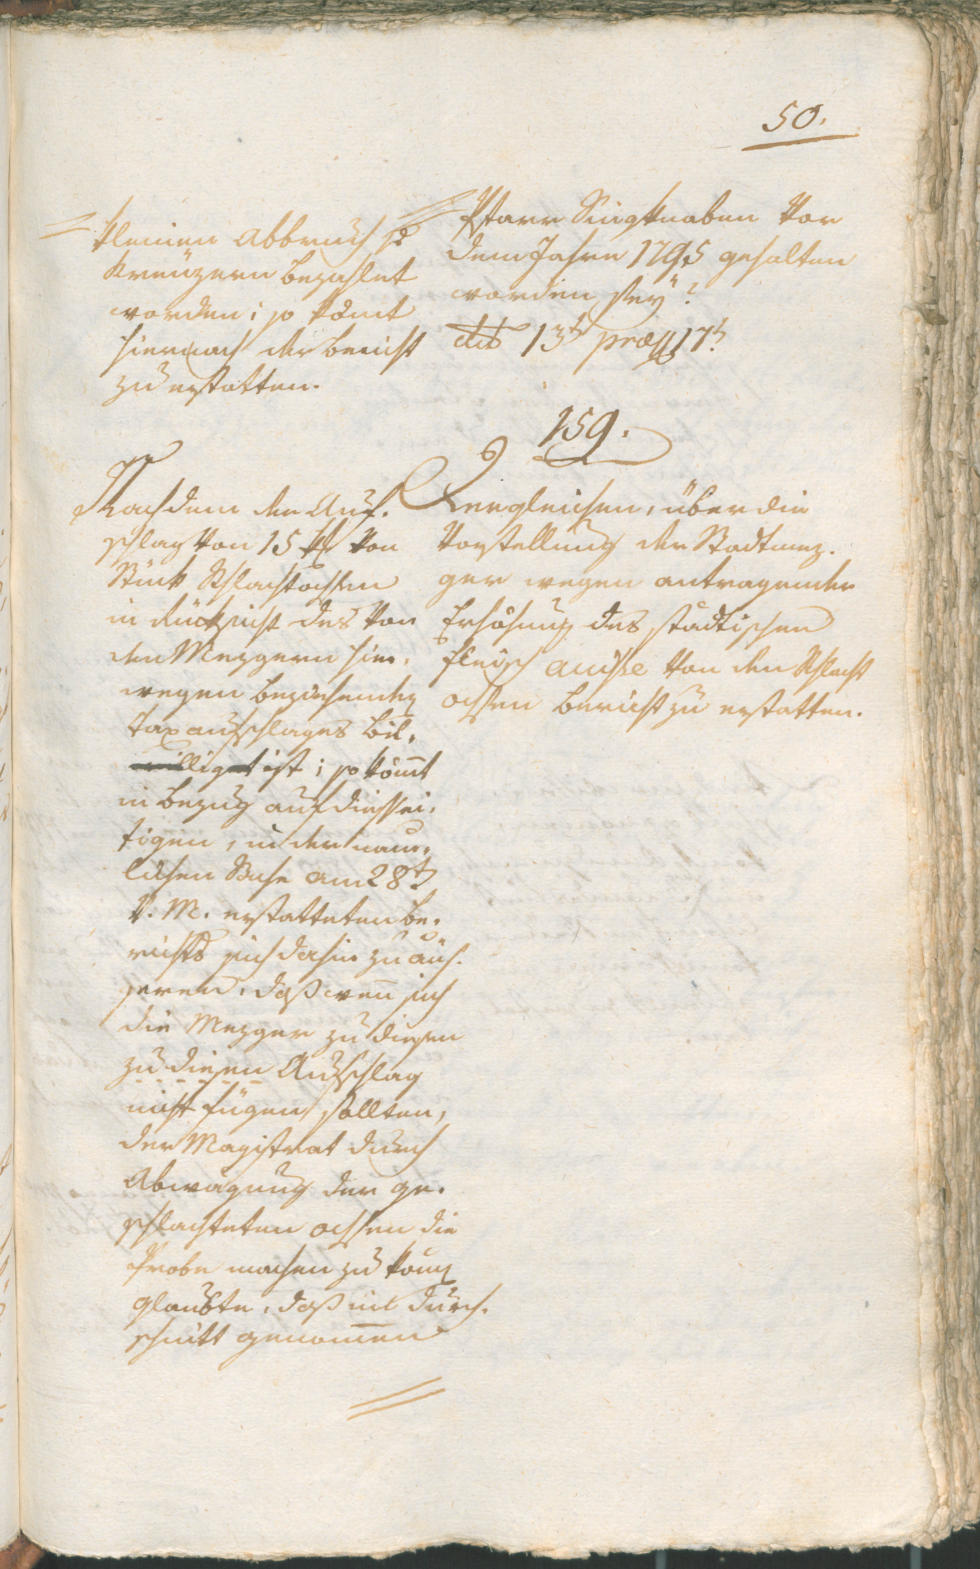 50.
kleinen Abbruch pr
Kreuzern bezahlet
worden; so kömt
hiernach der Bericht
zu erstatten.
Pfarr Singknaben vor
dem Jahre 1795 gehalten
worden sey?
dtto 13t praes 17t.
159.
Nachdem der Auf-
schlag von 15 Xr von
Stück Schlachtochsen
in Rücksicht des von
den Mezgern hier,
wegen beziehenden
Taxaufschlages bil,
ligt ist; so kömmt
in Bezug auf diessei,
tigen, in der näm,
lichen Sache am 28t
v. M. erstatteten Be,
richts sich dahin zu äus-
seren, daß wenn sich
die Mezger zu diesen
zu diesen Aufschlag
nicht fügen sollten,
der Magistrat durch
Abwägung der ge-
schlachteten Ochsen die
Probe machen zu könn
glaubte, daß im Durch-
schnitt genommen
Dergleichen, über die
Vorstellung der Stadtmez-
ger wegen antragender
Erhöhung des städtischen
Fleisch accise von den Schlacht
ochsen Bericht zu erstatten.